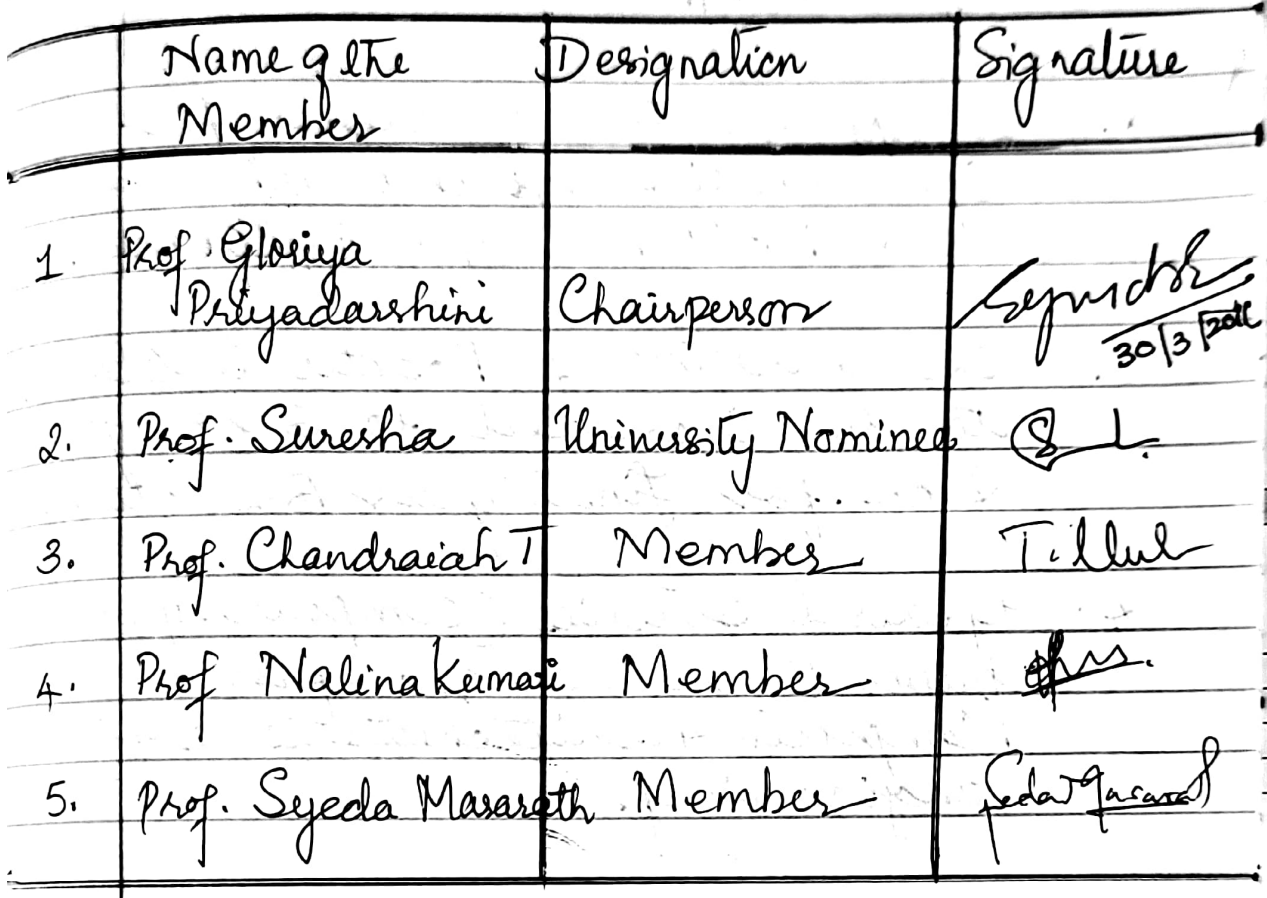 Name of the Designation Signature
Member
1. Prof. Gloriya
Priyadarshini Chairperson
30/3/
2. Prof. Suresha University Nominee
3. Prof. Chandraiah T Member
4. Prof Nalina Kumari Member
5. Prof. Syeda Masarath Member